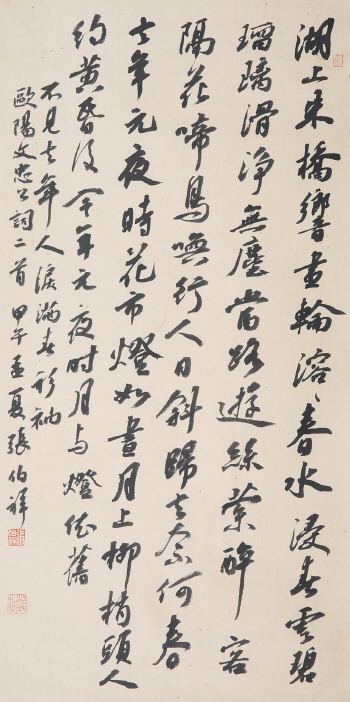 湖上朱橋響畫輪溶〻春水浸春雲碧
瑠璃滑浄無塵當路遊絲縈醉客
隔花啼鳥喚行人日斜歸去奈何春
去年元夜時花市燈如晝月上柳梢頭人
約黄昏後今年元夜时月与燈依舊
不見去年人淚滿春衫袖
歐陽文忠公詞二首 甲午孟夏張伯祥